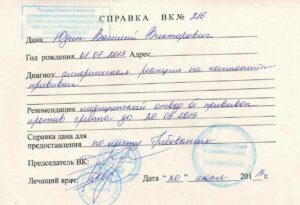 СПРАВКА ВК № 216
Дана Юдин Василий Викторович
Год рождения 01.07.2017 Адрес
Диагноз: аллергическая реакция на компоненты
прививки
Рекомендации медицинский отвод от прививок
против гриппа до 20.09.2019
Справка дана для
предоставления по месту требования
Председатель ВК:
Лечащий врач: Дата "20" июля 2019 г.